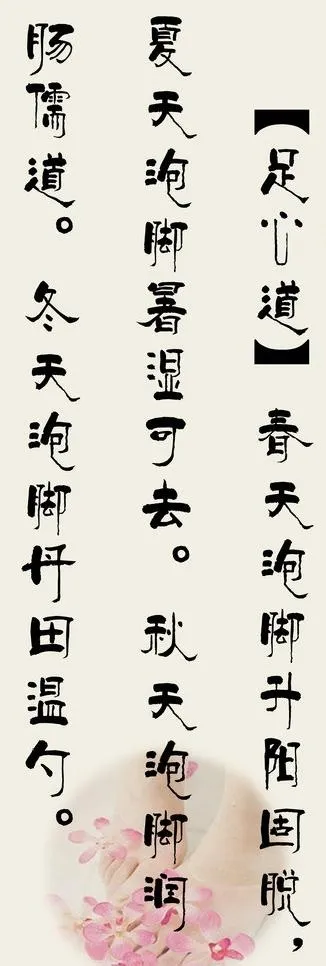 【足心道】春天泡脚升阳固脱，
夏天泡脚暑湿可去。秋天泡脚润
肠儒道。冬天泡脚丹田温勺。